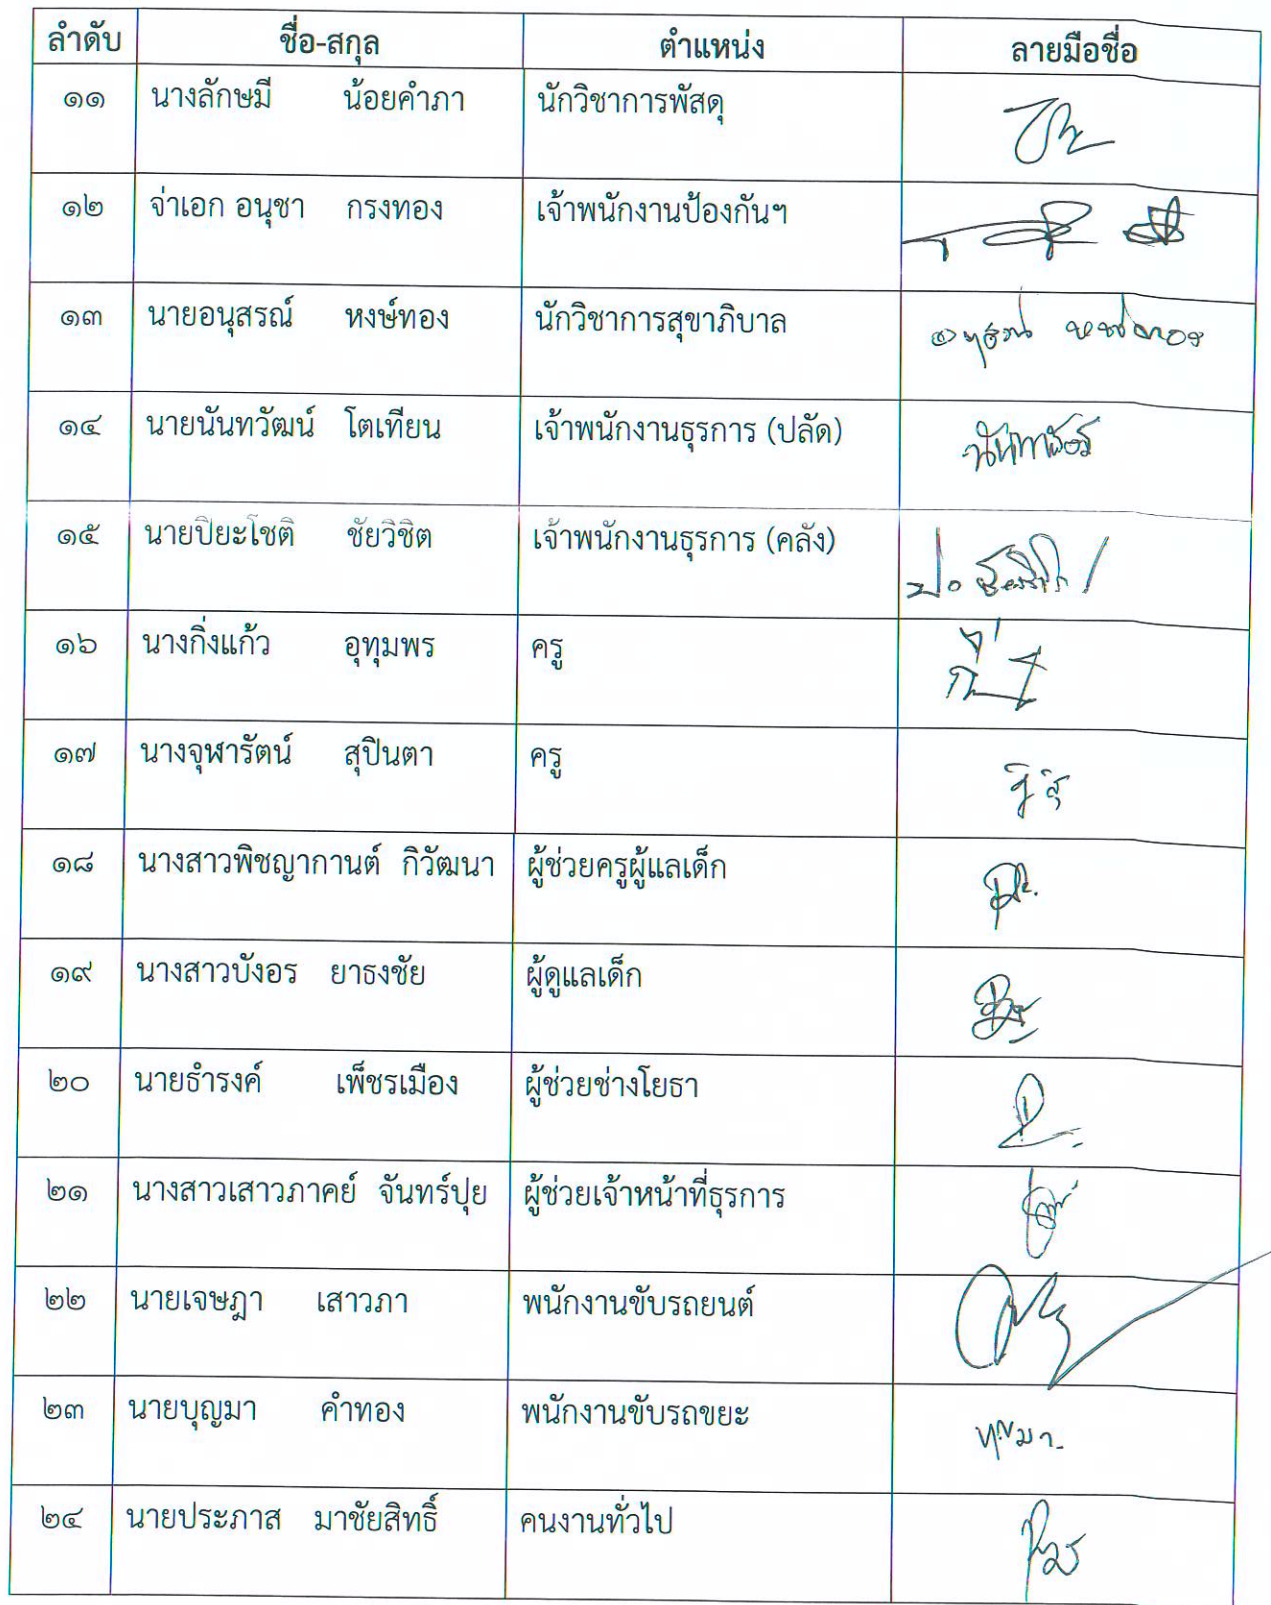 ลำดับ ชื่อ-สกุล ตำแหน่ง ลายมือชื่อ
๑๑ นางลักษมี น้อยคำภา นักวิชาการพัสดุ
๑๒ จ่าเอก อนุชา กรงทอง เจ้าพนักงานป้องกันฯ
๑๓ นายอนุสรณ์ หงษ์ทอง นักวิชาการสุขาภิบาล อนุสรณ์ หงษ์ทอง
๑๔ นายนันทวัฒน์ โตเทียน เจ้าพนักงานธุรการ (ปลัด)
๑๕ นายปิยะโชติ ชัยวิชิต เจ้าพนักงานธุรการ (คลัง)
๑๖ นางกิ่งแก้ว อุทุมพร ครู
๑๗ นางจุฬารัตน์ สุปินตา ครู
๑๘ นางสาวพิชญากานต์ กิวัฒนา ผู้ช่วยครูผู้แลเด็ก
๑๙ นางสาวบังอร ยาธงชัย ผู้ดูแลเด็ก
๒๐ นายธำรงค์ เพ็ชรเมือง ผู้ช่วยช่างโยธา
๒๑ นางสาวเสาวภาคย์ จันทร์ปุย ผู้ช่วยเจ้าหน้าที่ธุรการ
๒๒ นายเจษฎา เสาวภา พนักงานขับรถยนต์
๒๓ นายบุญมา คำทอง พนักงานขับรถขยะ บุญมา
๒๔ นายประภาส มาชัยสิทธิ์ คนงานทั่วไป